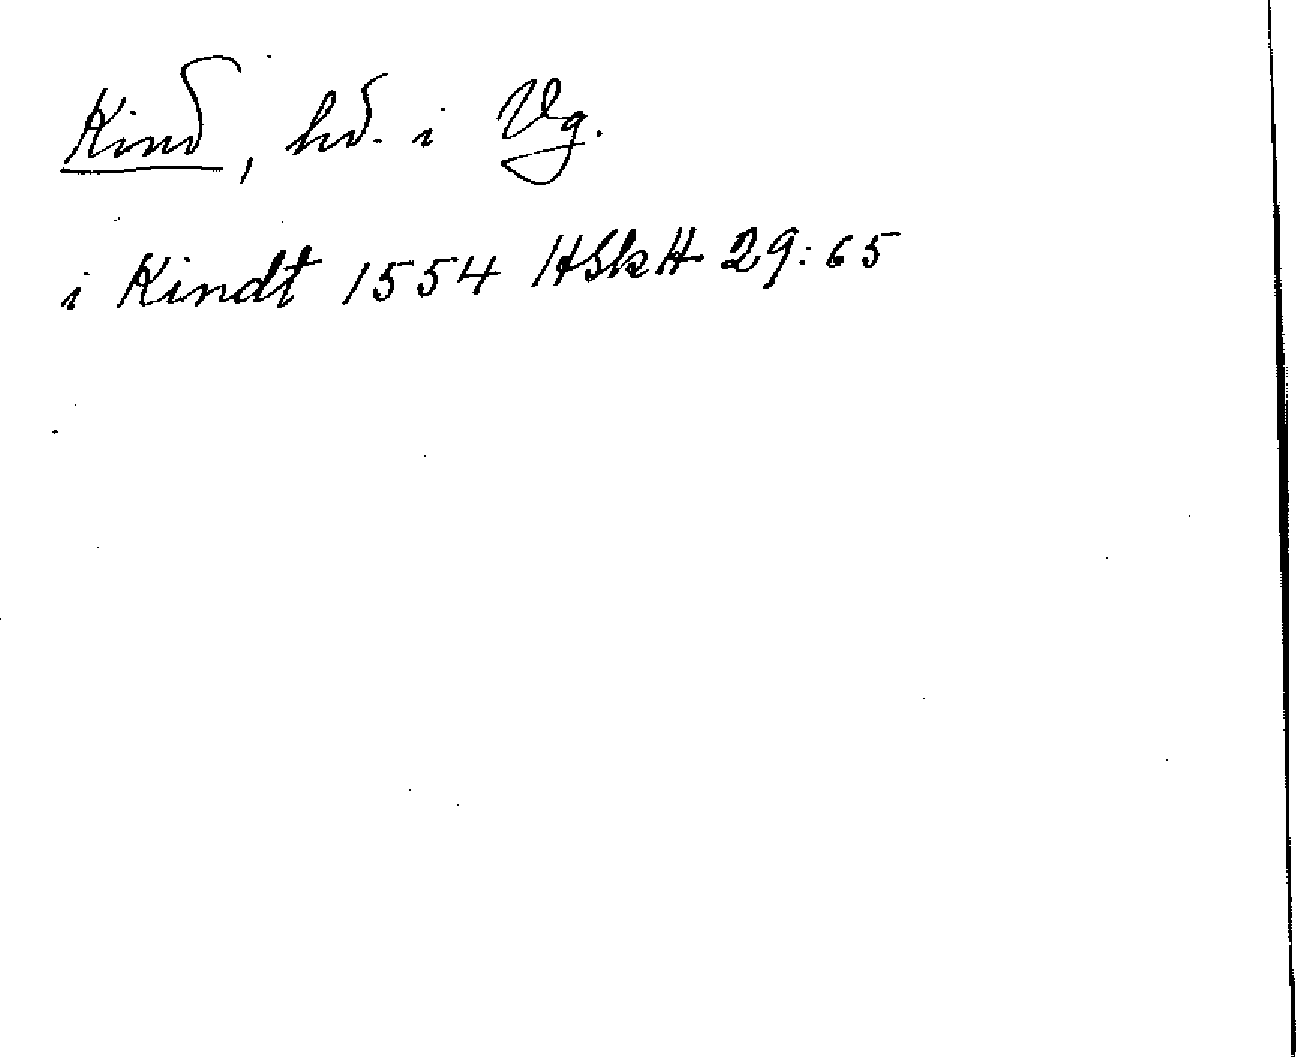 Kind, hd. i Vg.
i Kindt 1554 HSkH 29:65